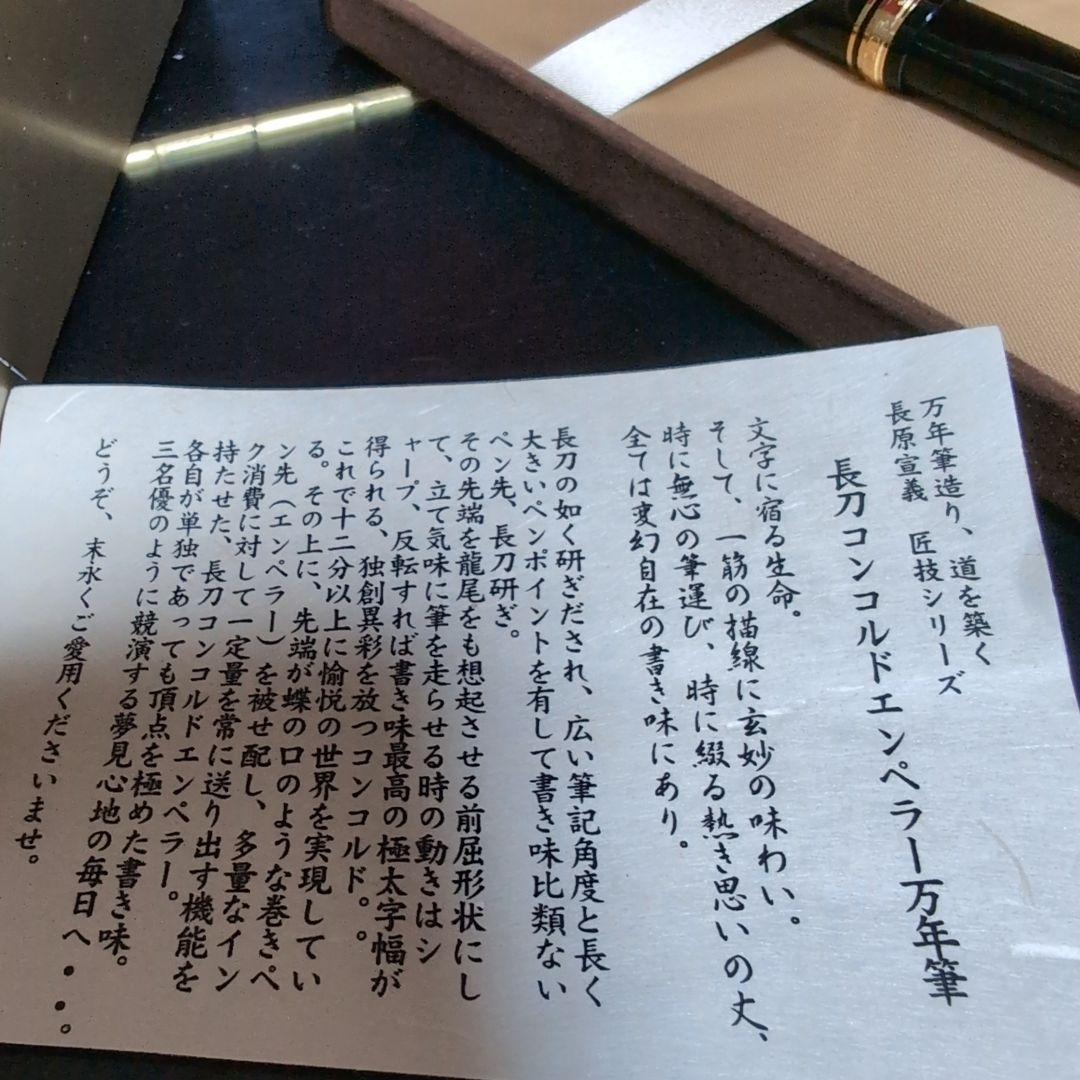 万年筆造り、道を築く
長原宣義 匠技シリーズ
長刀コンコルドエンペラー万年筆
文字に宿る生命。
そして、一筋の描線に玄妙の味わい。
時に無心の筆運び、時に綴る熱き思いの丈、
全ては変幻自在の書き味にあり。
長刀の如く研ぎだされ、広い筆記角度と長く
大きいペンポイントを有して書き味比類ない
ペン先、長刀研ぎ。
その先端を龍尾をも想起させる前屈形状にし
て、立て気味に筆を走らせる時の動きはシ
ャープ、反転すれば書き味最高の極太字幅が
得られる、独創異彩を放つコンコルド。。
これで十二分以上に愉悦の世界を実現してい
る。その上に、先端が蝶の口のような巻きペ
ン先（エンペラー）を被せ配し、多量なイン
ク消費に対して一定量を常に送り出す機能を
持たせた、長刀コンコルドエンペラー。
各自が単独であっても頂点を極めた書き味。
三名優のように競演する夢見心地の毎日へ・・・。
どうぞ、末永くご愛用くださいませ。